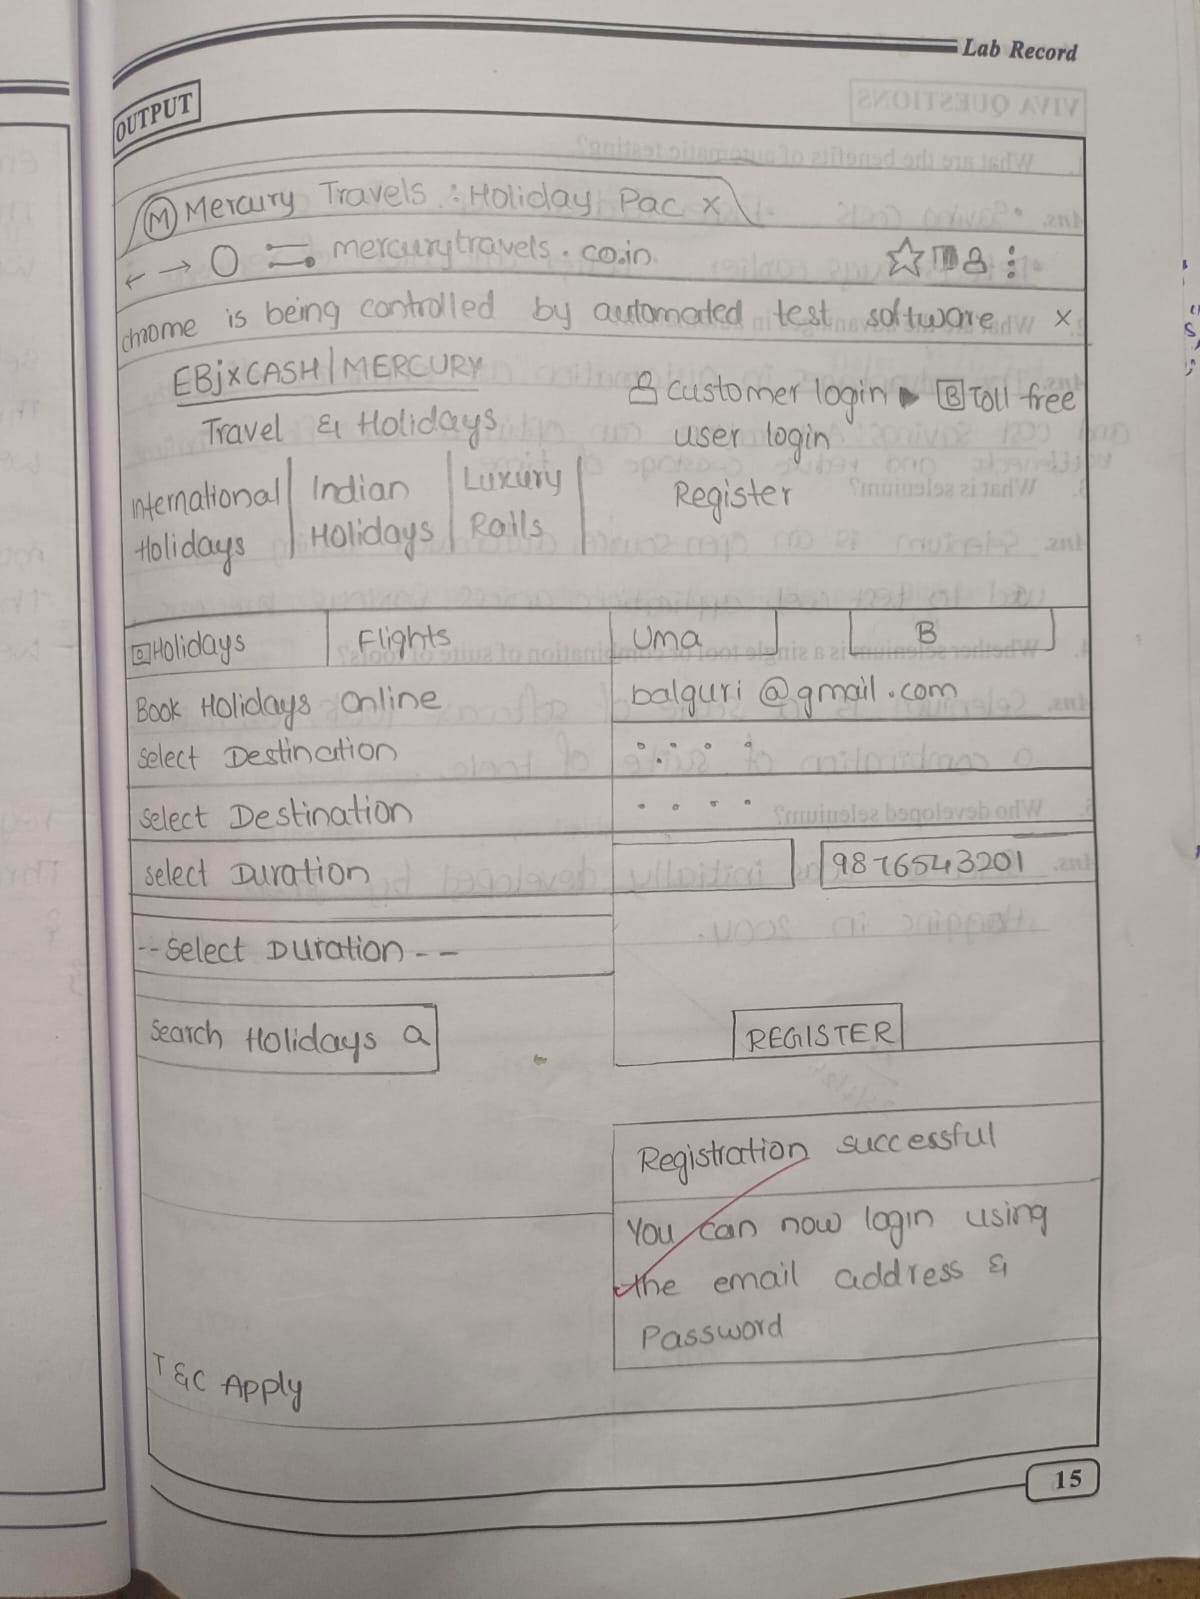 Lab Record
OUTPUT
M Mercury Travels : Holiday Pac x
mercurytravels.co.in
chrome is being controlled by automated test software x
EBjxCASH | MERCURY
Travel & Holidays
Customer login ▶ B Toll free
user login
Register
International Holidays | Indian Holidays | Luxury Rails
Holidays Flights Uma B
Book Holidays Online balguri@gmail.com
Select Destination
Select Destination
Select Duration 9876543201
--Select Duration--
Search Holidays REGISTER
Registration successful
You can now login using
the email address &
Password
T&C Apply
15